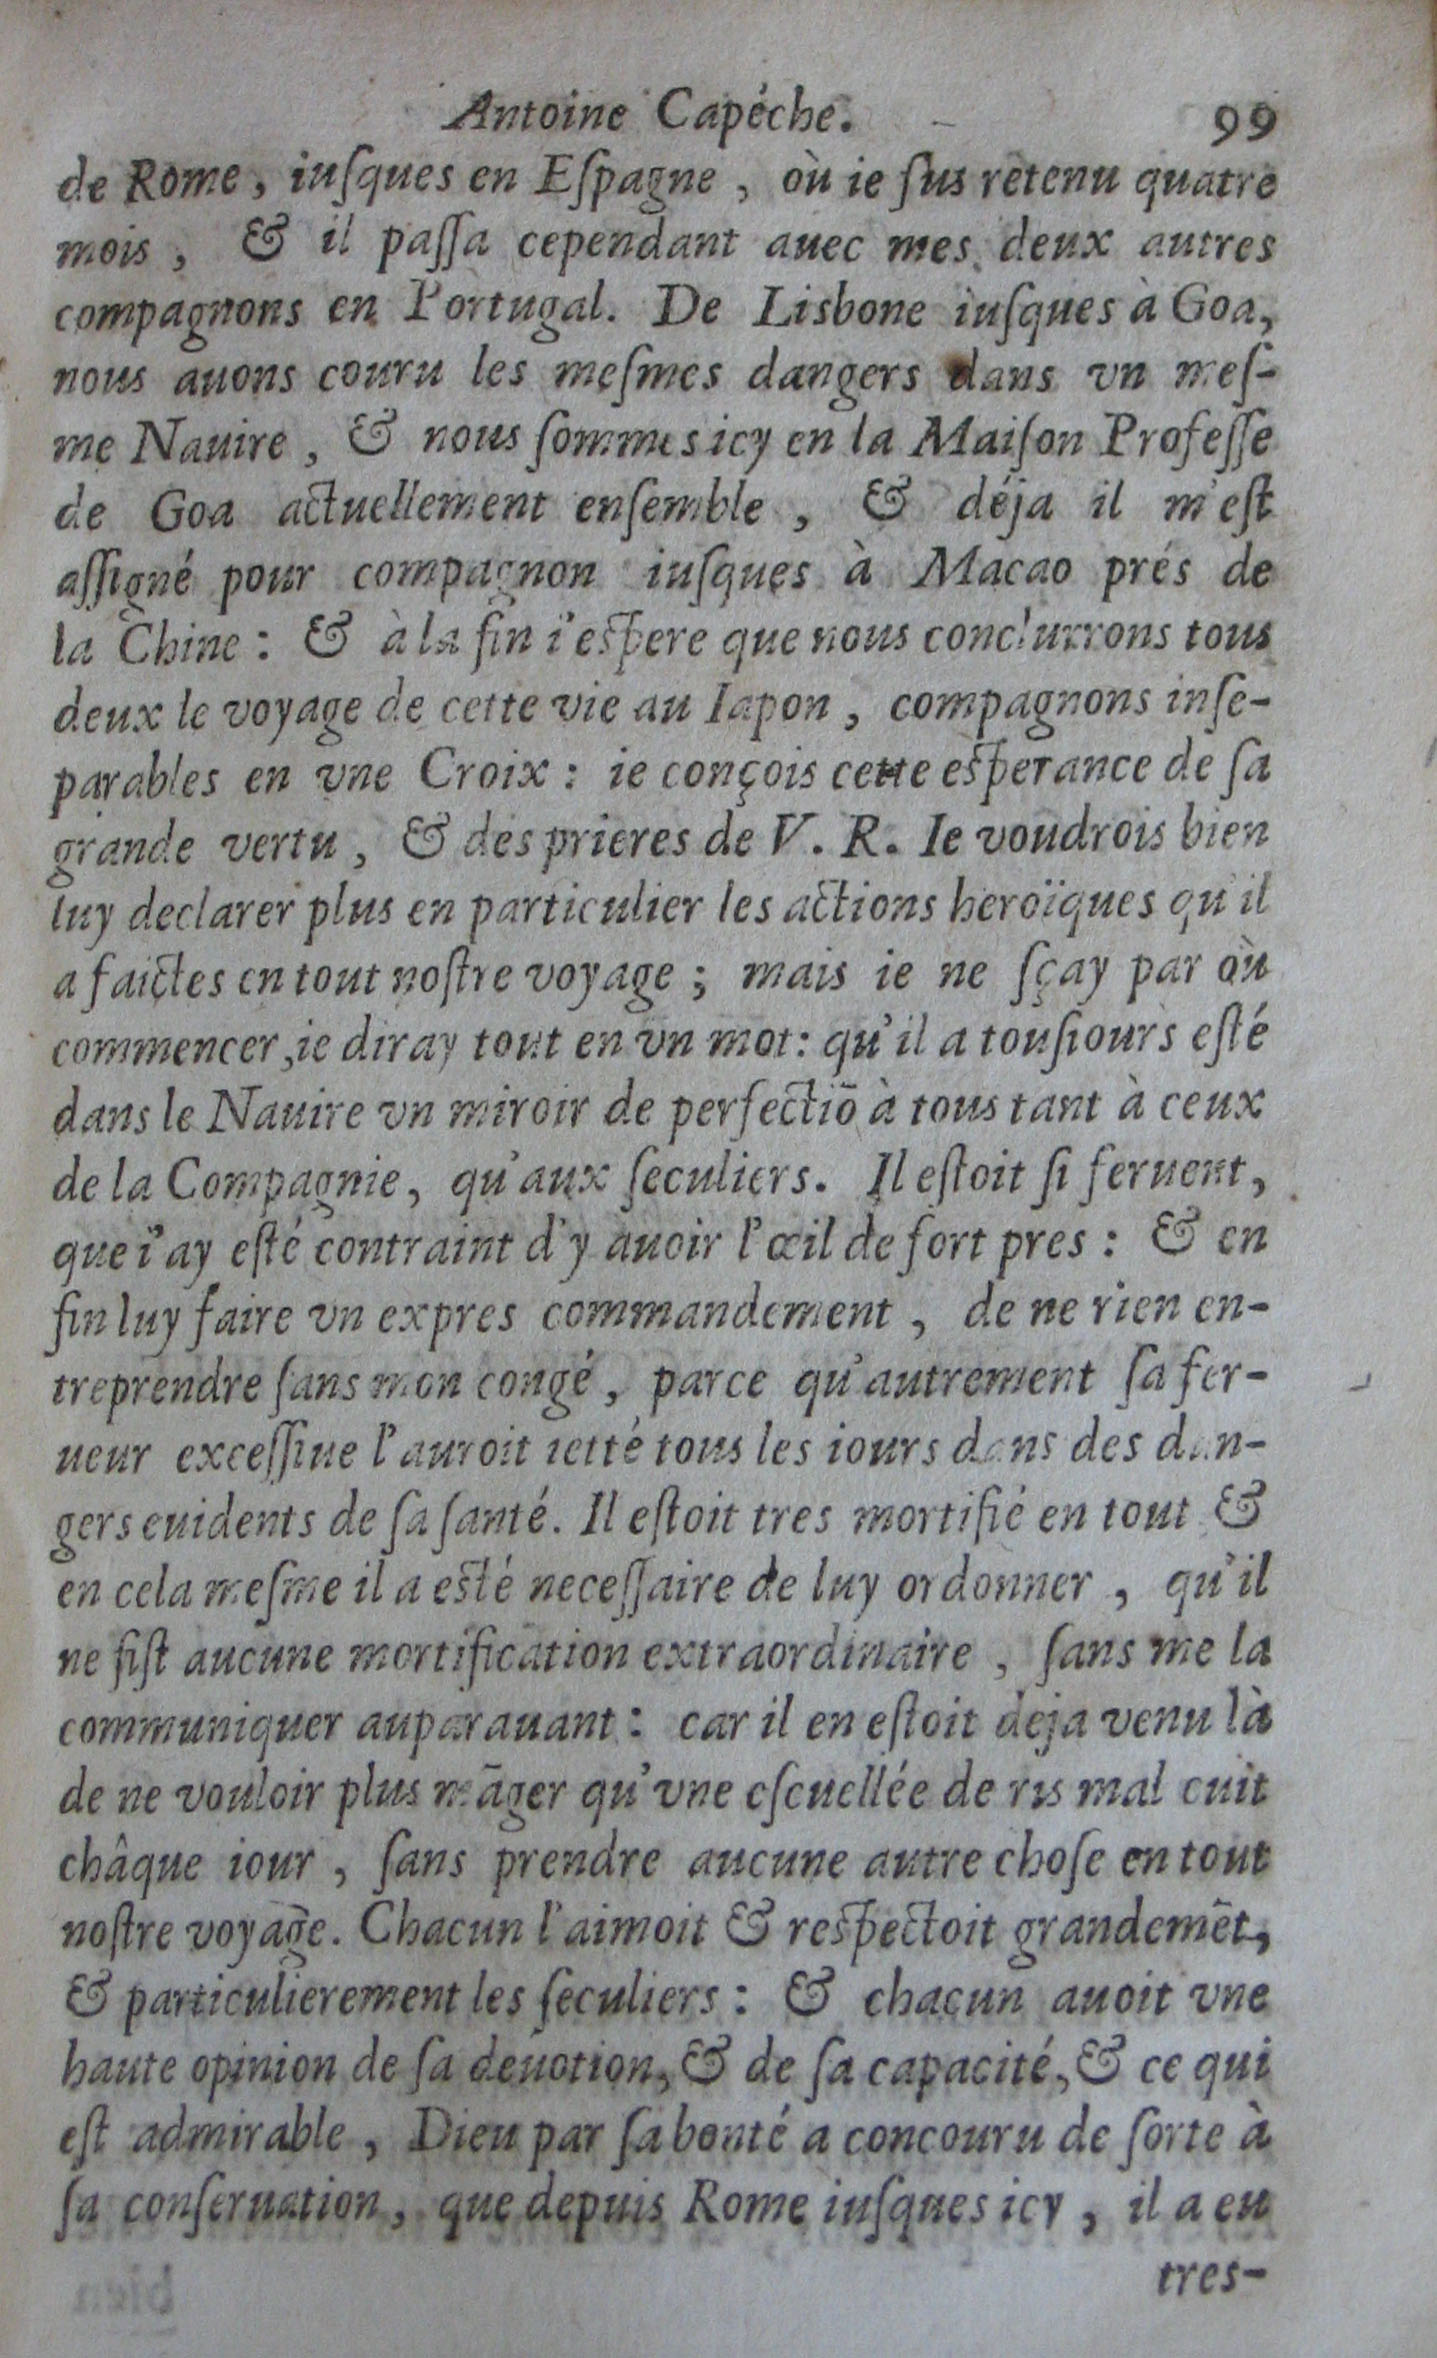 Antoine Capéche. 99
de Rome, iuſques en Eſpagne, où ie ſus retenu quatre
mois, & il paſſa cependant auec mes deux autres
compagnons en Portugal. De Lisbone iuſques à Goa,
nous auons couru les meſmes dangers dans vn meſ-
me Nauire, & nous ſommes icy en la Maiſon Profeſſe
de Goa actuellement enſemble, & déja il m'eſt
aſſigné pour compagnon iuſques à Macao prés de
la Chine: & à la fin i'eſpere que nous conclurrons tous
deux le voyage de cette vie au Iapon, compagnons inſe-
parables en vne Croix: ie conçois cette eſperance de ſa
grande vertu, & des prieres de V. R. Ie voudrois bien
luy declarer plus en particulier les actions heroïques qu'il
a faictes en tout noſtre voyage; mais ie ne ſçay par où
commencer, ie diray tout en vn mot: qu'il a touſiours eſté
dans le Nauire vn miroir de perfectiō à tous tant à ceux
de la Compagnie, qu'aux ſeculiers. Il eſtoit ſi feruent,
que i'ay eſté contraint d'y auoir l'œil de fort pres: & en
fin luy faire vn expres commandement, de ne rien en-
treprendre ſans mon congé, parce qu'autrement ſa fer-
ueur exceſſiue l'auroit ietté tous les iours dans des dan-
gers euidents de ſa ſanté. Il eſtoit tres mortifié en tout &
en cela meſme il a eſté neceſſaire de luy ordonner, qu'il
ne fiſt aucune mortification extraordinaire, ſans me la
communiquer auparauant: car il en eſtoit deja venu là
de ne vouloir plus māger qu'vne eſcuellée de ris mal cuit
châque iour, ſans prendre aucune autre choſe en tout
noſtre voyage. Chacun l'aimoit & reſpectoit grandemēt,
& particulierement les ſeculiers: & chacun auoit vne
haute opinion de ſa deuotion, & de ſa capacité, & ce qui
eſt admirable, Dieu par ſa bonté a concouru de ſorte à
ſa conſeruation, que depuis Rome iuſques icy, il a eu
tres-